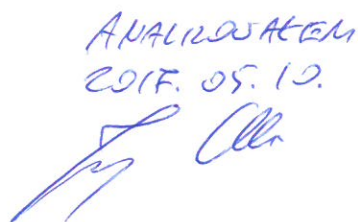 ANALIZOWAŁEM
2017. 05. 10.